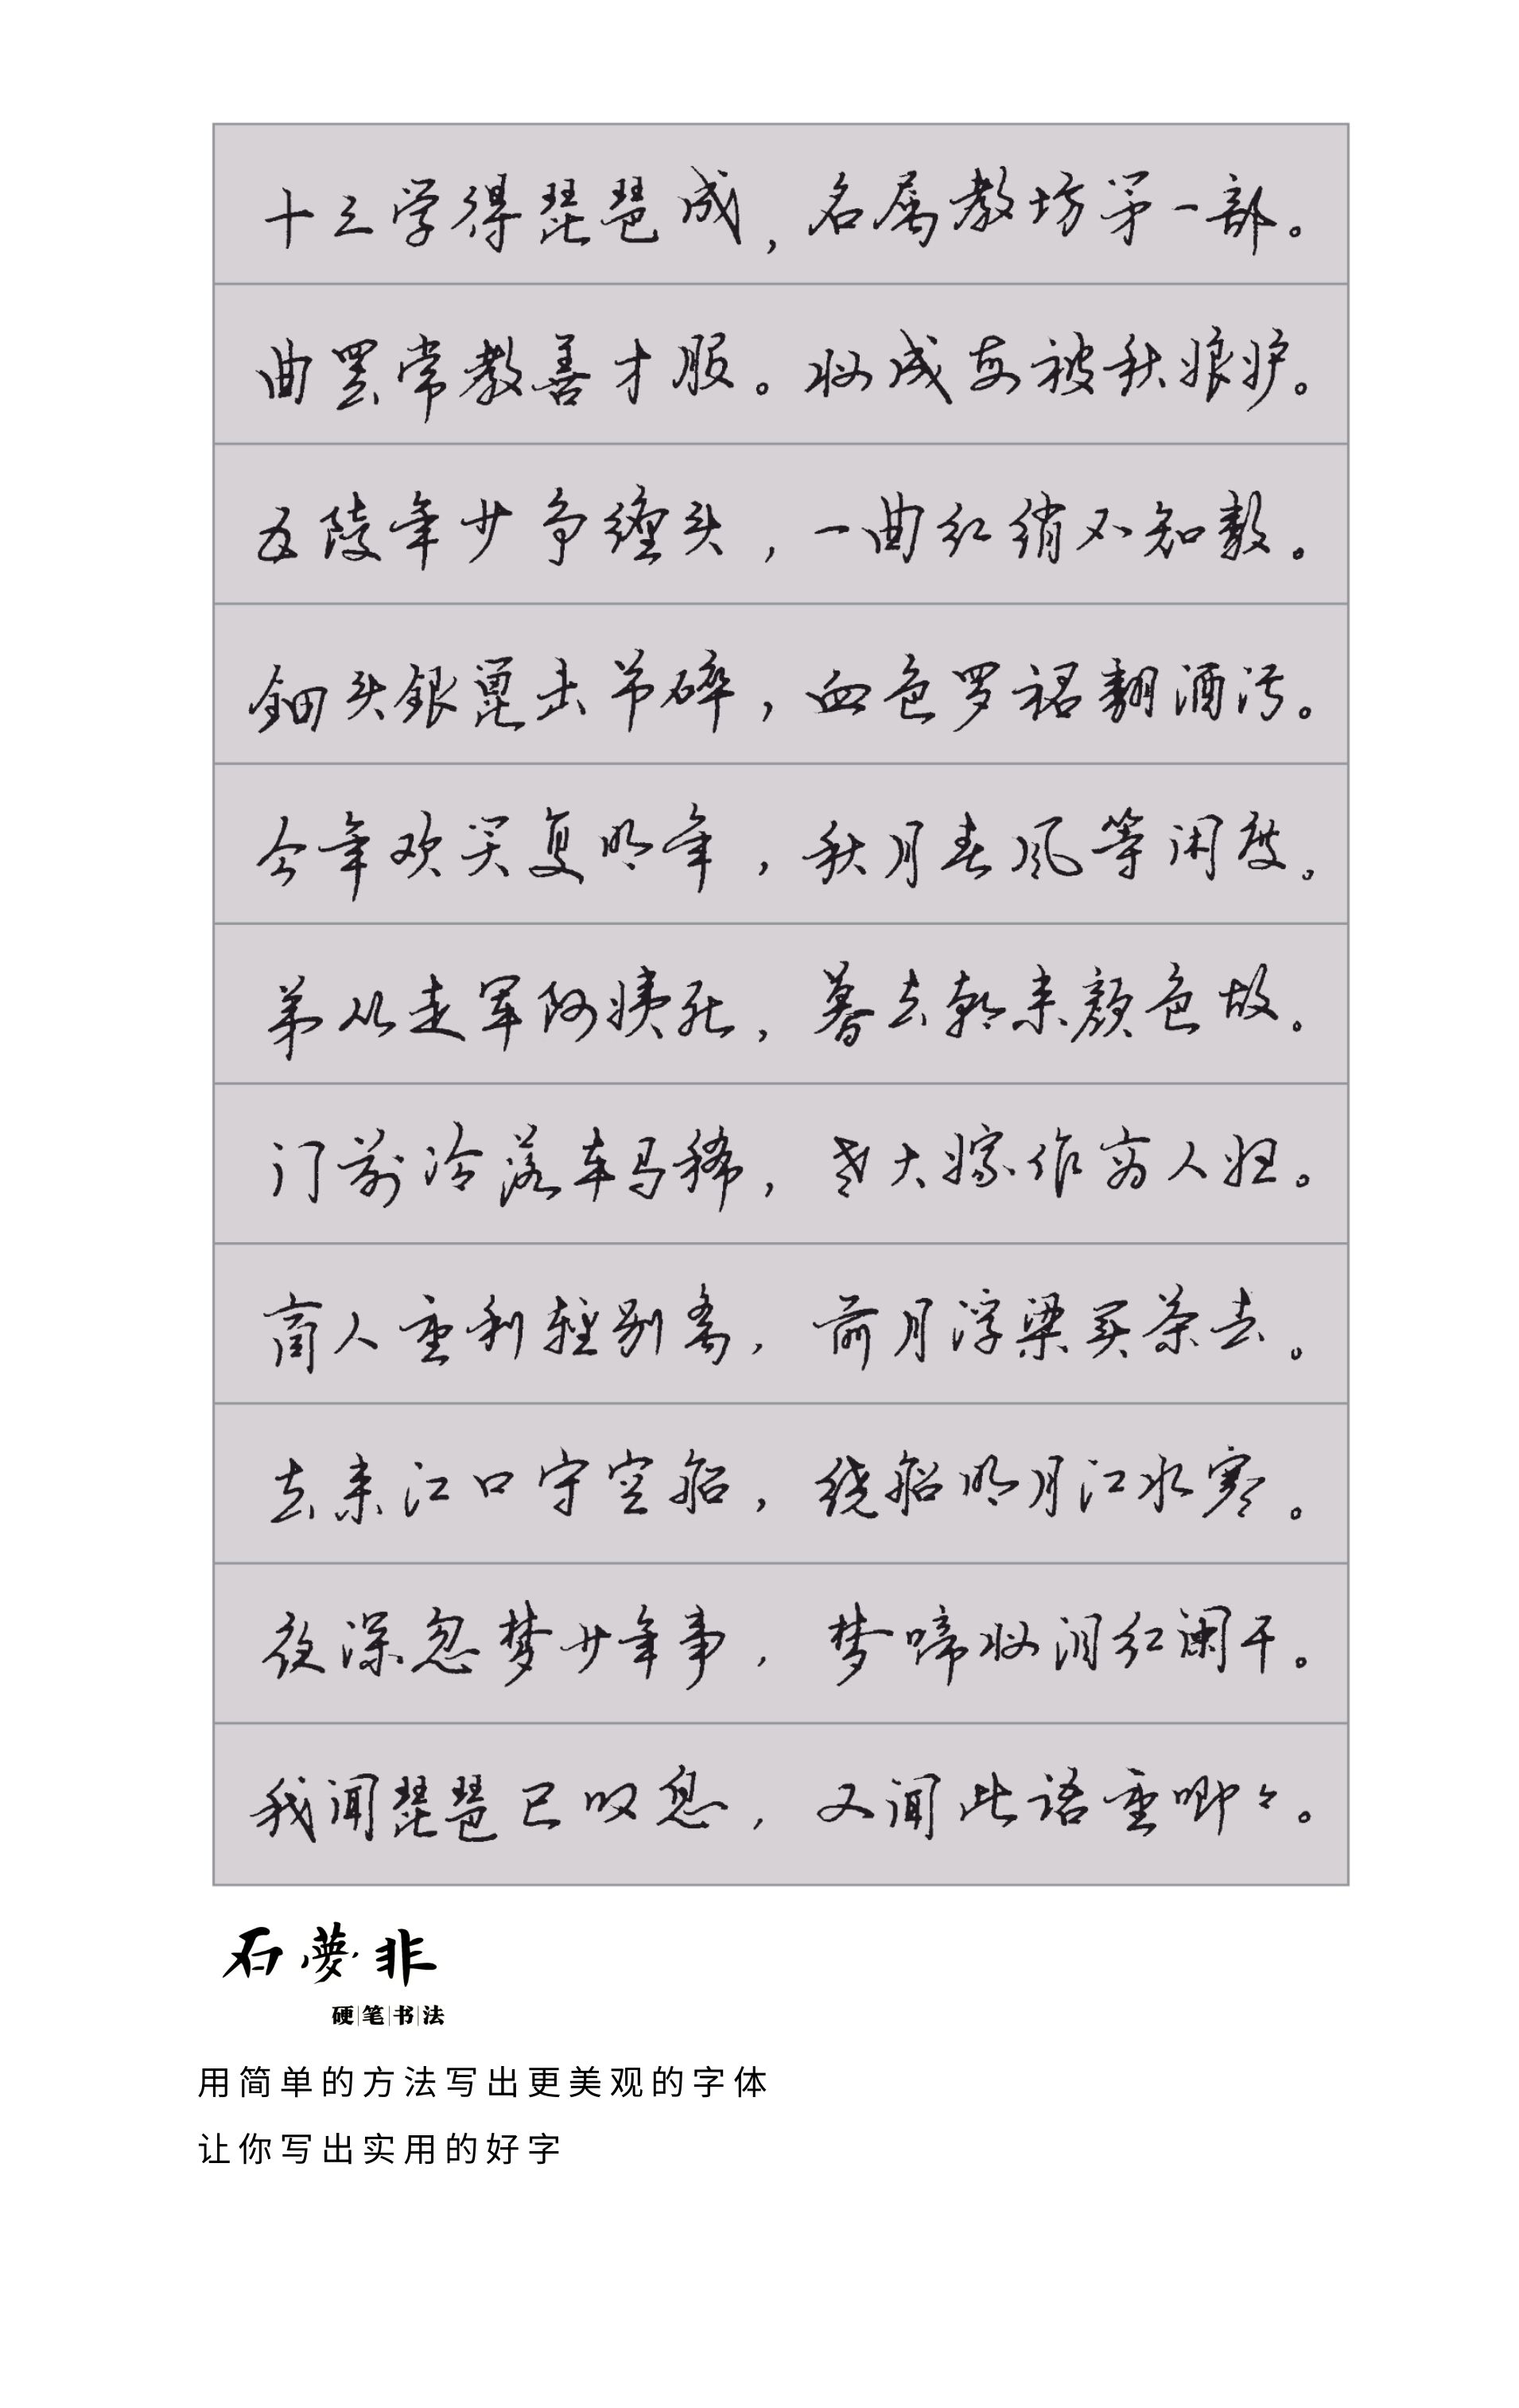 十三学得琵琶成，名属教坊第一部。
曲罢常教善才服。妆成每被秋娘妒。
五陵年少争缠头，一曲红绡不知数。
钿头银篦击节碎，血色罗裙翻酒污。
今年欢笑复明年，秋月春风等闲度。
弟从走军阿姨死，暮去朝来颜色故。
门前冷落车马稀，老大嫁作商人妇。
商人重利轻别离，前月浮梁买茶去。
去来江口守空船，绕船明月江水寒。
夜深忽梦少年事，梦啼妆泪红阑干。
我闻琵琶已叹息，又闻此语重唧々。
石夢非
硬笔书法
用简单的方法写出更美观的字体
让你写出实用的好字